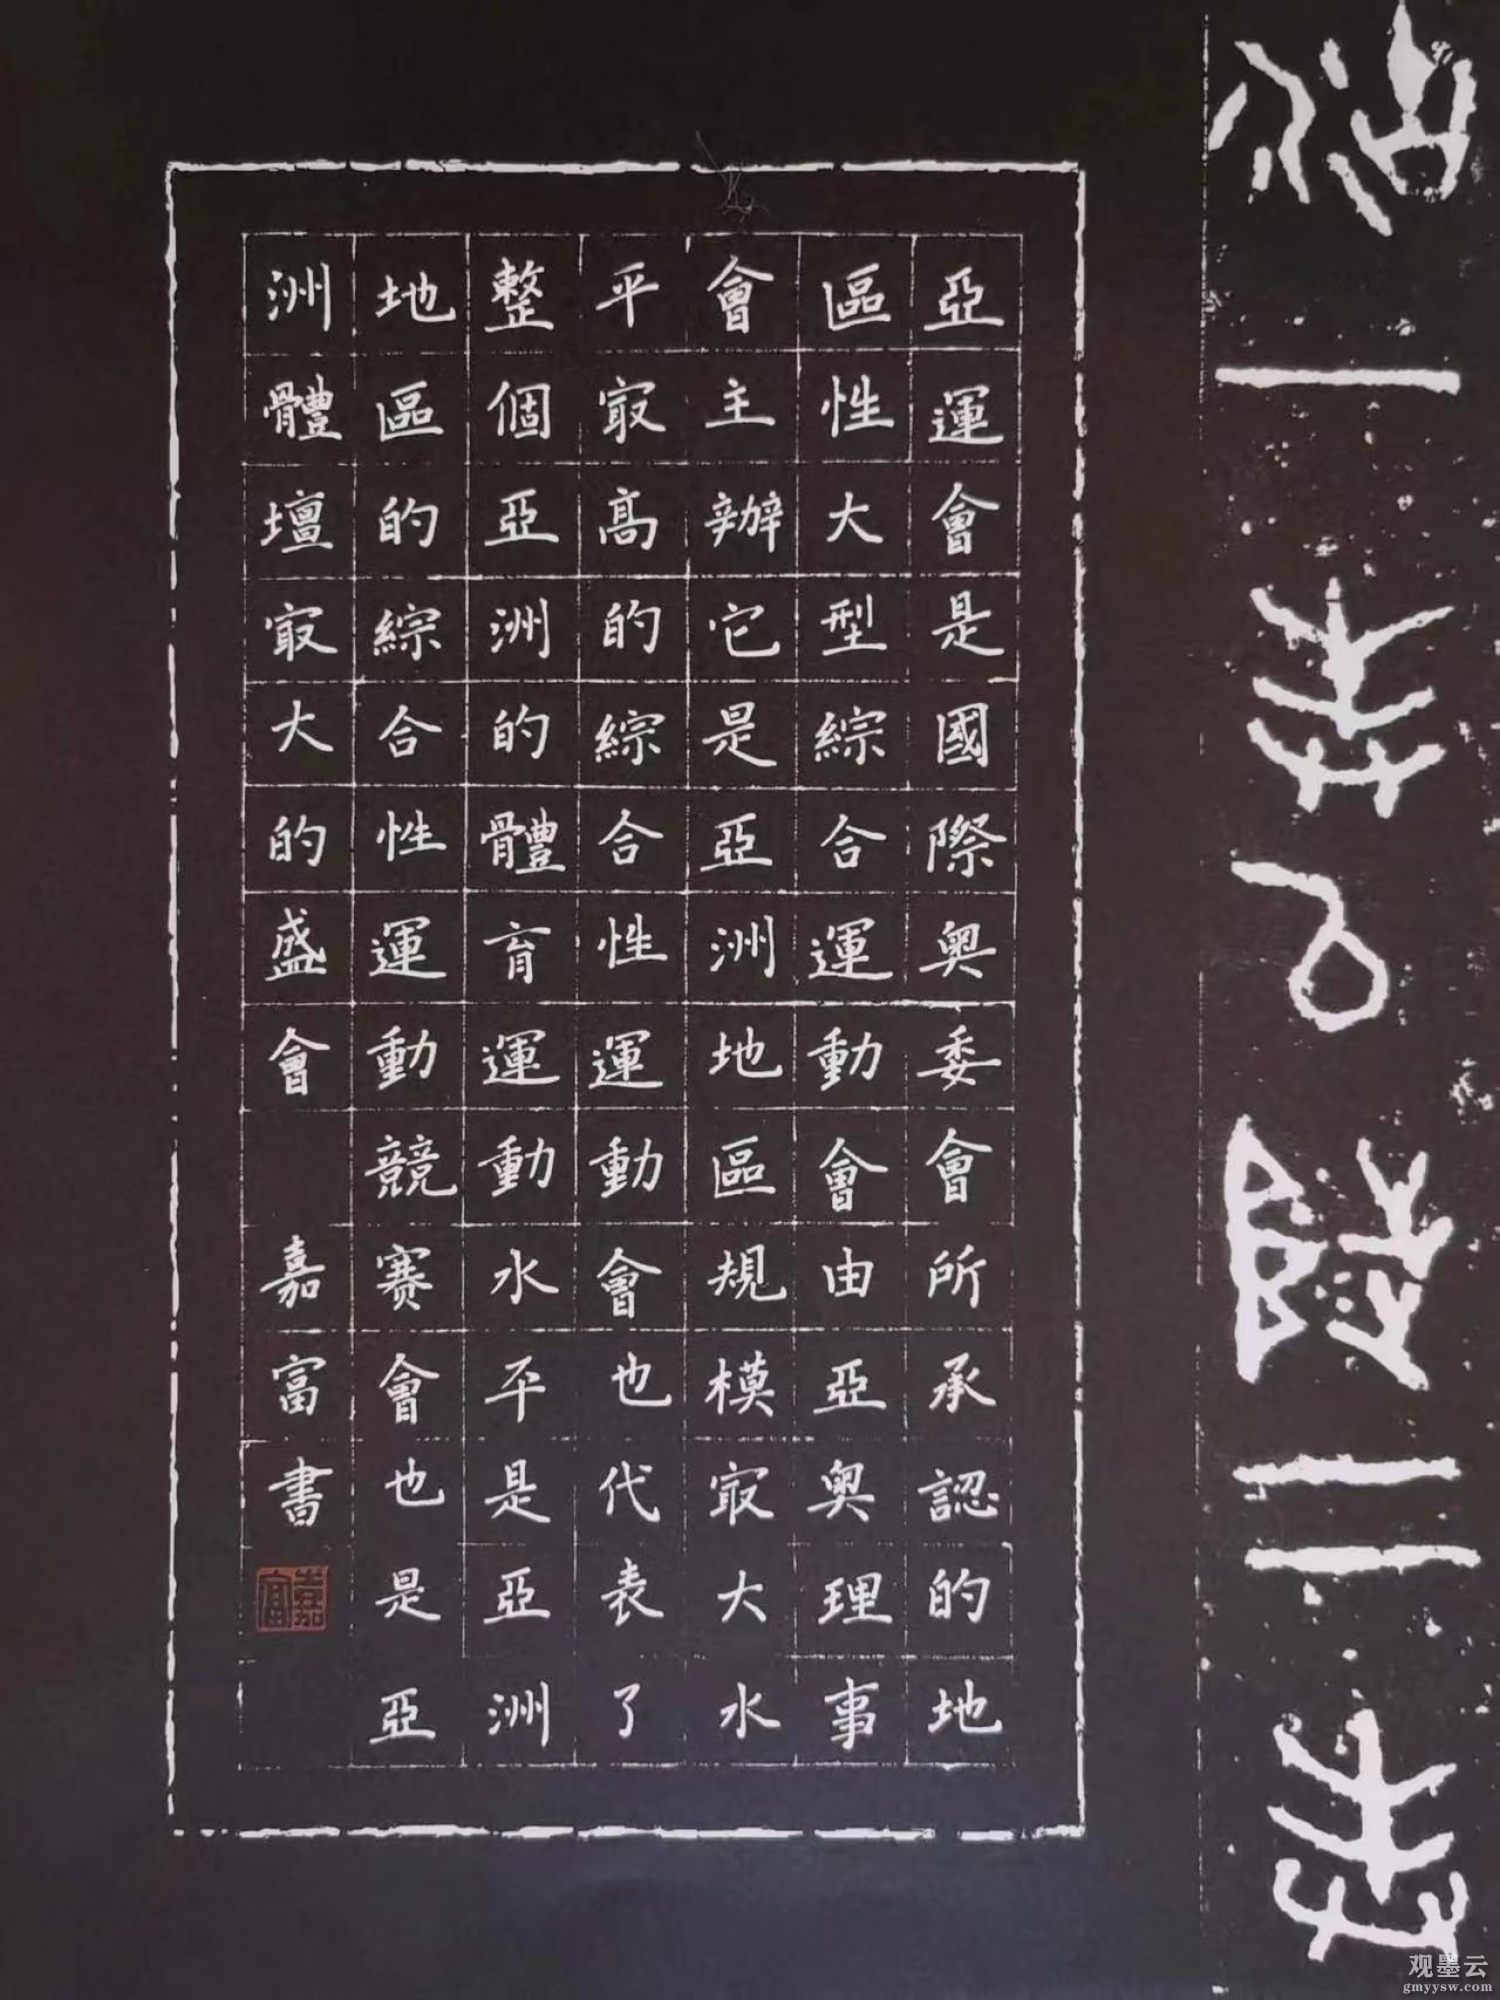 亞運會是國際奧委會所承認的地
區性大型綜合運動會由亞奧理事
會主辦它是亞洲地區規模㝡大水
平㝡高的綜合性運動會也代表了
整個亞洲的體育運動水平是亞洲
地區的綜合性運動競賽會也是亞
洲體壇㝡大的盛會 嘉富書
嘉富
观墨云
gmyysw.com